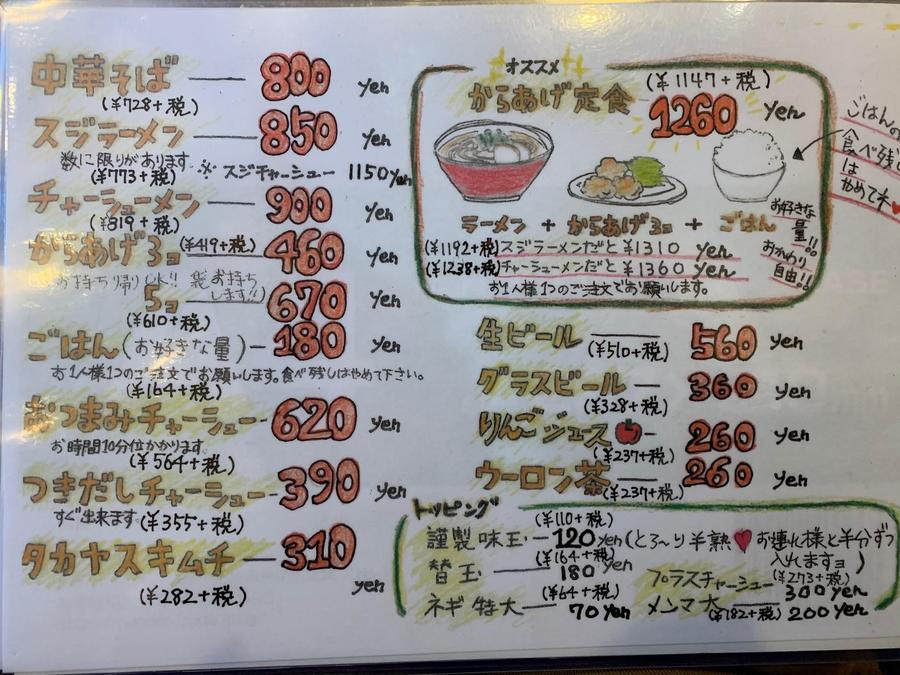 中華そば 800 yen
(¥728+税)
スジラーメン 850 yen
数に限りがあります。 ※ スジチャーシュー 1150yen
(¥773+税)
チャーシューメン 900 yen
(¥819+税)
からあげ3コ (¥419+税) 460 yen
お持ち帰りOK!! 袋お持ち
します!!
5コ 670 yen
(¥610+税)
ごはん(お好きな量) 180 yen
お1人様1つのご注文でお願いします。食べ残しはやめて下さい。
(¥164+税)
おつまみチャーシュー 620 yen
お時間10分位かかります。
(¥564+税)
つきだしチャーシュー 390 yen
すぐ出来ます。(¥355+税)
タカヤスキムチ 310 yen
(¥282+税)
オススメ
からあげ定食 (¥1147+税)
1260 yen
ラーメン + からあげ3コ + ごはん
(¥1192+税)スジラーメンだと ¥1310 yen
(¥1238+税)チャーシューメンだと ¥1360 yen
お1人様1つのご注文でお願いします。
お好きな
量!!
おかわり
自由!!
ごはんの
食べ残し
は
やめてネ♥
生ビール 560 yen
(¥510+税)
グラスビール 360 yen
(¥328+税)
りんごジュース 260 yen
(¥237+税)
ウーロン茶 260 yen
(¥237+税)
トッピング
(¥110+税)
謹製味玉 120 yen (とろ〜り半熟♥お連れ様と半分ずつ
入れますヨ)
(¥164+税)
替玉 180 yen
(¥273+税)
プラスチャーシュー 300 yen
(¥64+税)
ネギ特大 70 yen
メンマ大 (¥182+税) 200 yen